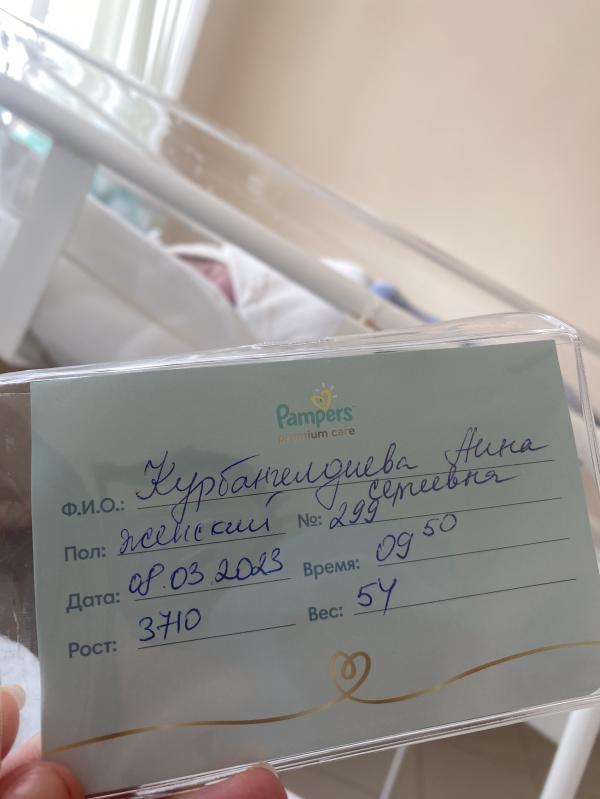 Pampers
premium care
Ф.И.О.: Курбангелдиева Анна
Сергеевна
Пол: женский №: 299
Дата: 08.03.2023 Время: 09 50
Рост: 3710 Вес: 54